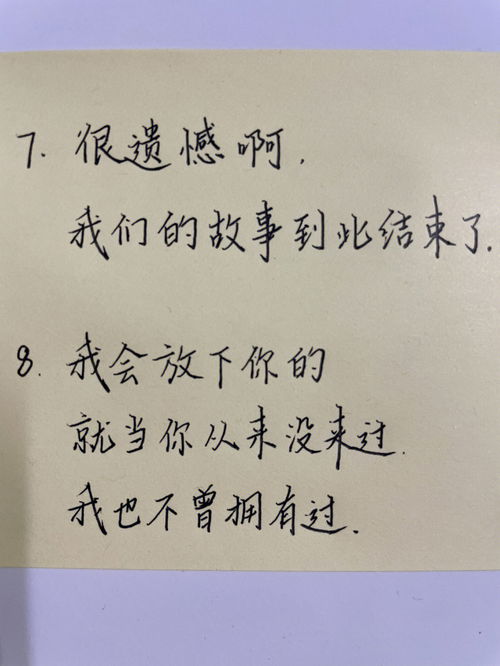 7. 很遗憾啊.
我们的故事到此结束了.
8. 我会放下你的
就当你从来没来过.
我也不曾拥有过.